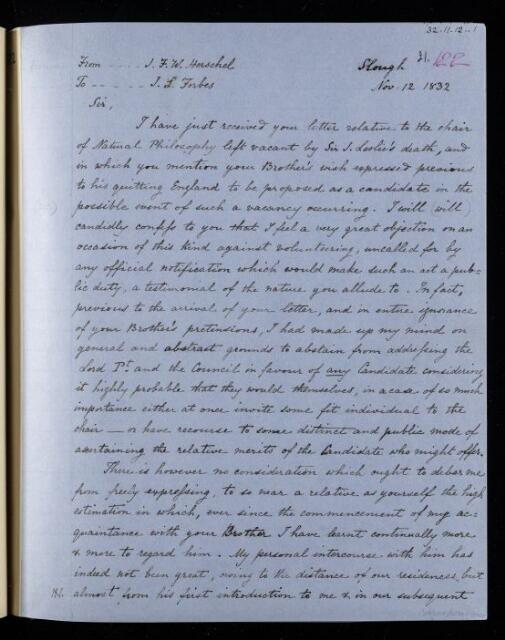 32.11.12..1
From .... J. F. W. Herschel
Slough 31.
To ..... J. L. Forbes
Nov. 12 1832
Sir,
I have just received your letter relative to the chair
of Natural Philosophy left vacant by Sir J. Leslie's death, and
in which you mention your Brother's wish expressed previous
to his quitting England to be proposed as a candidate in the
possible event of such a vacancy occurring. I will (will)
candidly confess to you that I feel a very great objection on an
occasion of this kind against volunteering, uncalled for by
any official notification which would make such an act a pub=
lic duty, a testimonial of the nature you allude to. In fact,
previous to the arrival of your letter, and in entire ignorance
of your Brother's pretensions, I had made up my mind on
general and abstract grounds to abstain from addressing the
Lord Pt. and the Council in favour of any Candidate considering
it highly probable that they would themselves, in a case of so much
importance either at once invite some fit individual to the
chair — or have recourse to some distinct and public mode of
ascertaining the relative merits of the Candidate who might offer.
There is however no consideration which ought to debar me
from freely expressing, to so near a relative as yourself the high
estimation in which, ever since the commencement of my ac=
quaintance with your Brother I have learnt continually more
& more to regard him. My personal intercourse with him has
indeed not been great, owing to the distance of our residences, but
almost from his first introduction to me & in our subsequent